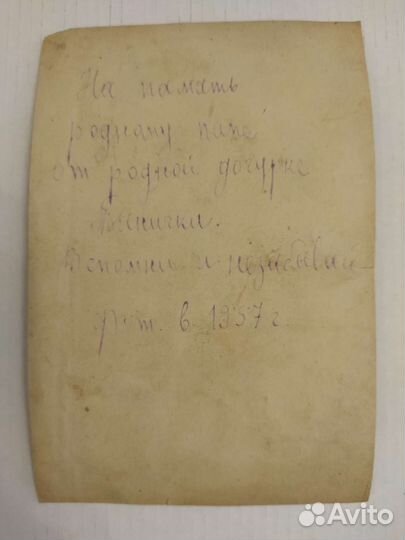 На память
родному папе
от родной дочурке
Вспомни и незабывай
в 1957 г.
Avito